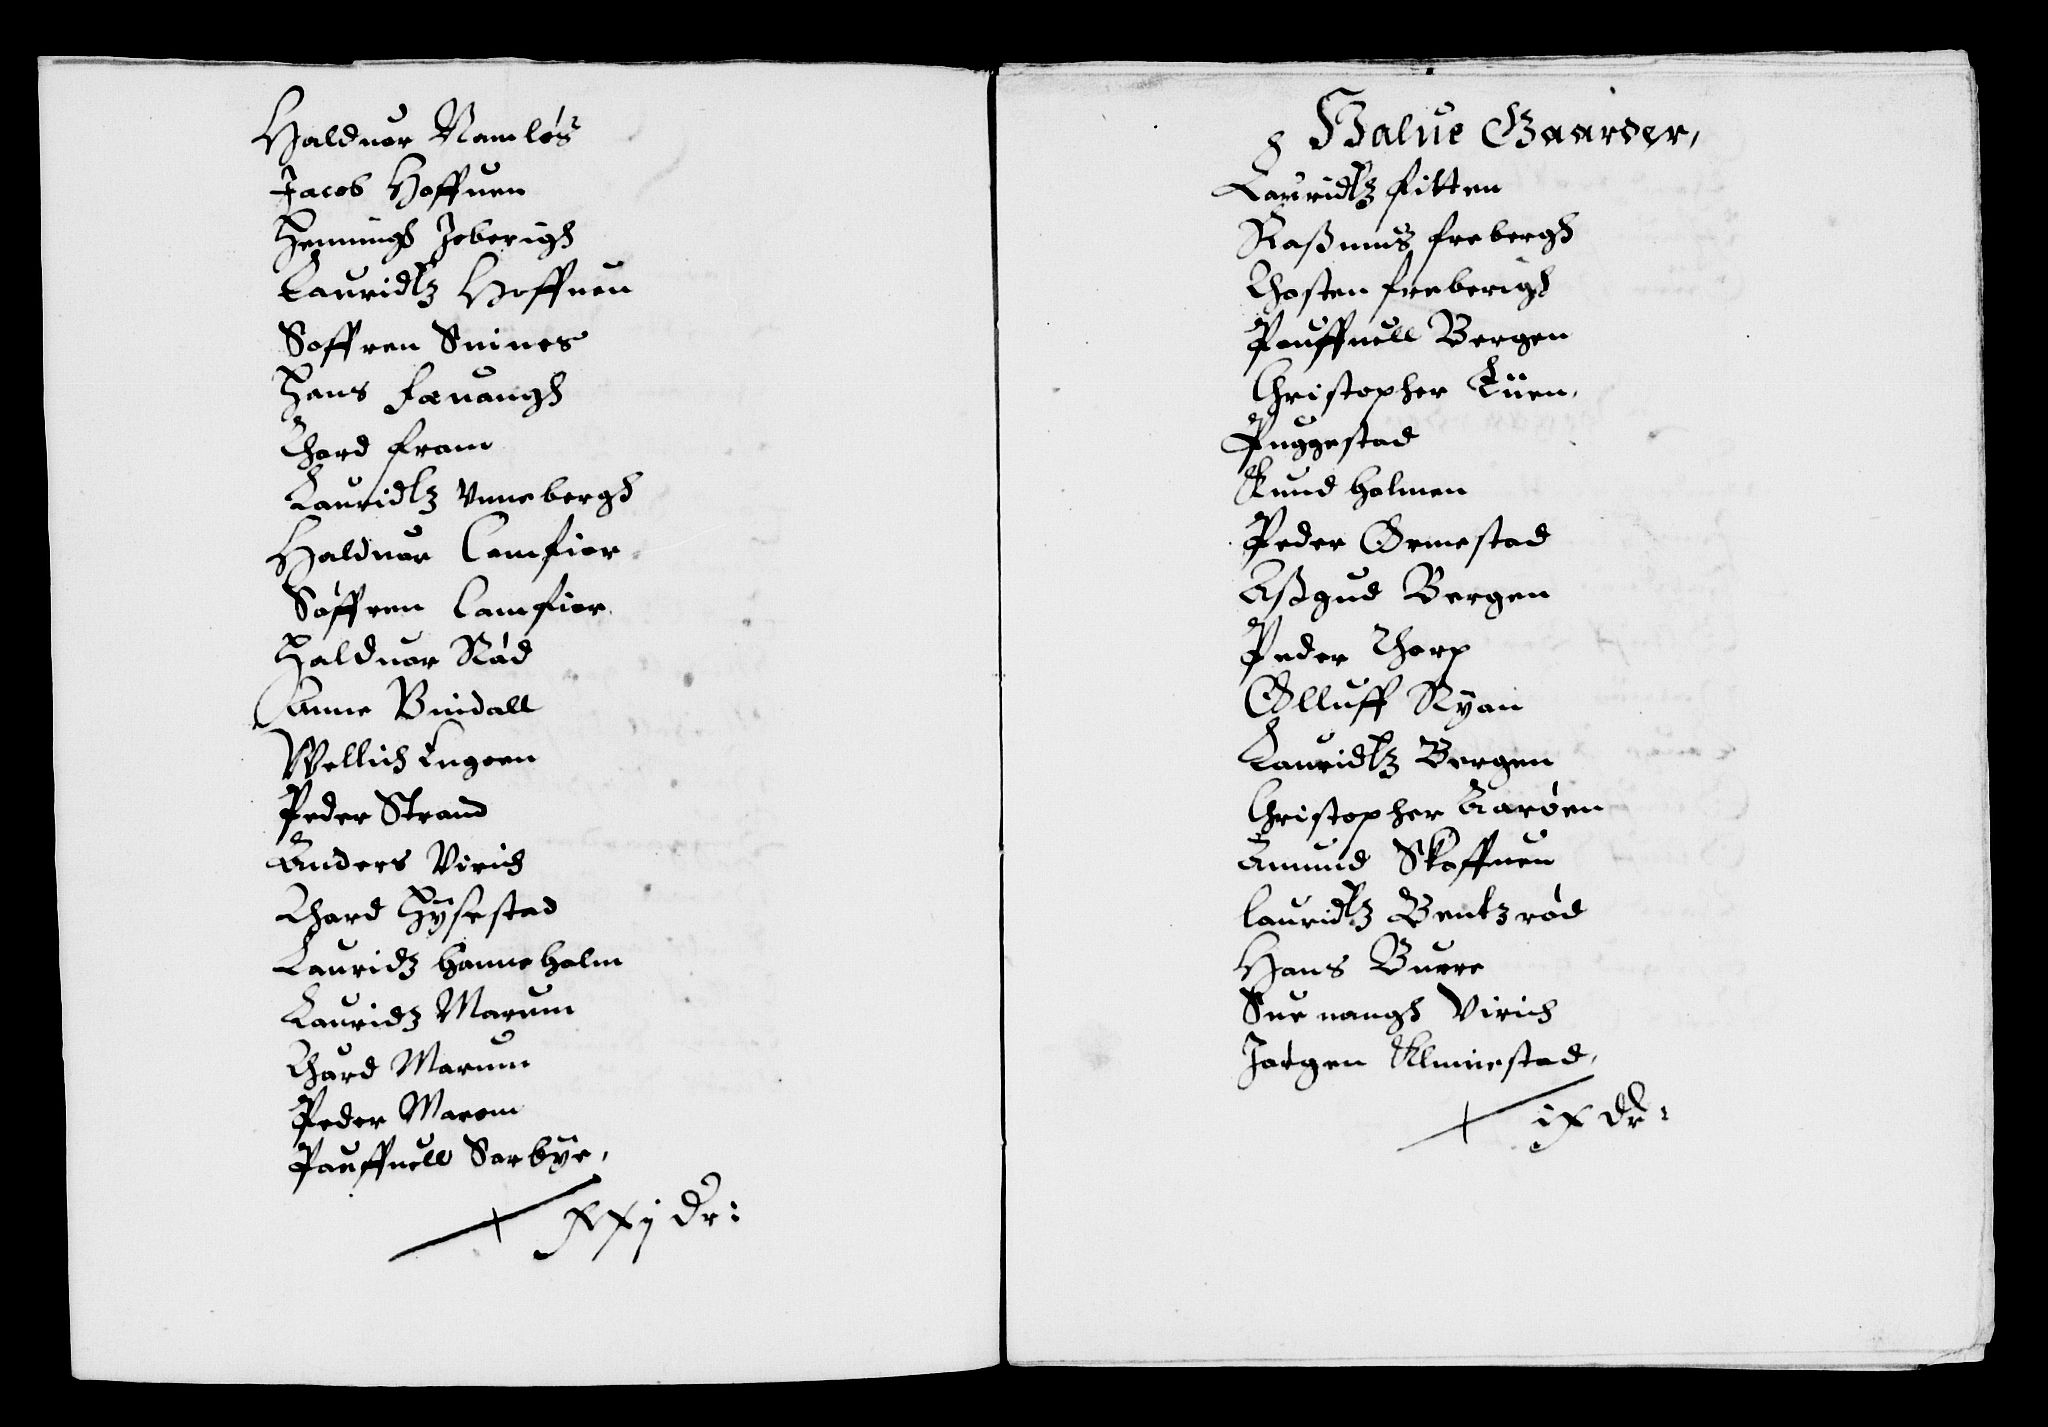 Halduor Namløs
Jacob Hoffuen
Henningh Joberigh
Lauridtz Hoffuen
Soffren Snines
Hans Fæuangh
Thord Fram
Lauridtz Unnebergh
Halduor Camfior
Søffren Camfior
Halduor Rød
Anne Vindall
Wellich Engoen
Peder Strand
Anders Virich
Thord Hysestad
Lauridz Hanneholm
Lauridz Marum
Thord Marum
Peder Marom
Pouffuell Sorbye,
xxj dr:
Halue Gaarder,
Lauridtz Fitten
Rasmus Frebergh
Thosten Freberigh
Pouffuell Bergen
Christopher Tuen,
Puggestad
Knud Holmen
Peder Ormestad
Assgud Bergen
Peder Thorp
Olluff Ryan
Lauridtz Bergen
Christopher Aarøen
Amund Skoffuen
Lauridtz Bentzrød
Hans Buerre
Suenangh Virich
Jørgen Klinnestad,
ix dr: